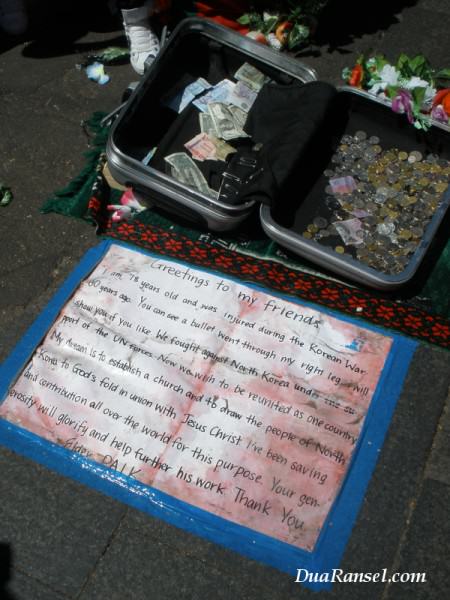 Greetings to my friends
I am 78 years old and was injured during the Korean War
60 years ago. You can see a bullet went through my right leg. I will
show you if you like. We fought against North Korea under the su
pport of the UN forces. Now we wish to be reunited as one country
My dream is to establish a church and to draw the people of North
Korea to God's fold in union with Jesus Christ. I've been saving
and contribution all over the world for this purpose. Your gen-
erosity will glorify and help further his work. Thank You
Elder PAIK
DuaRansel.com